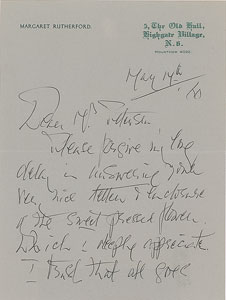 MARGARET RUTHERFORD.
5, The Old Hall,
Highgate Village,
N. 6.
May 14th
Dear Mr
Please forgive my long
delay in answering your
very nice letter & enclosure
of the sweet pressed flower
which I deeply appreciate
I trust that all goes